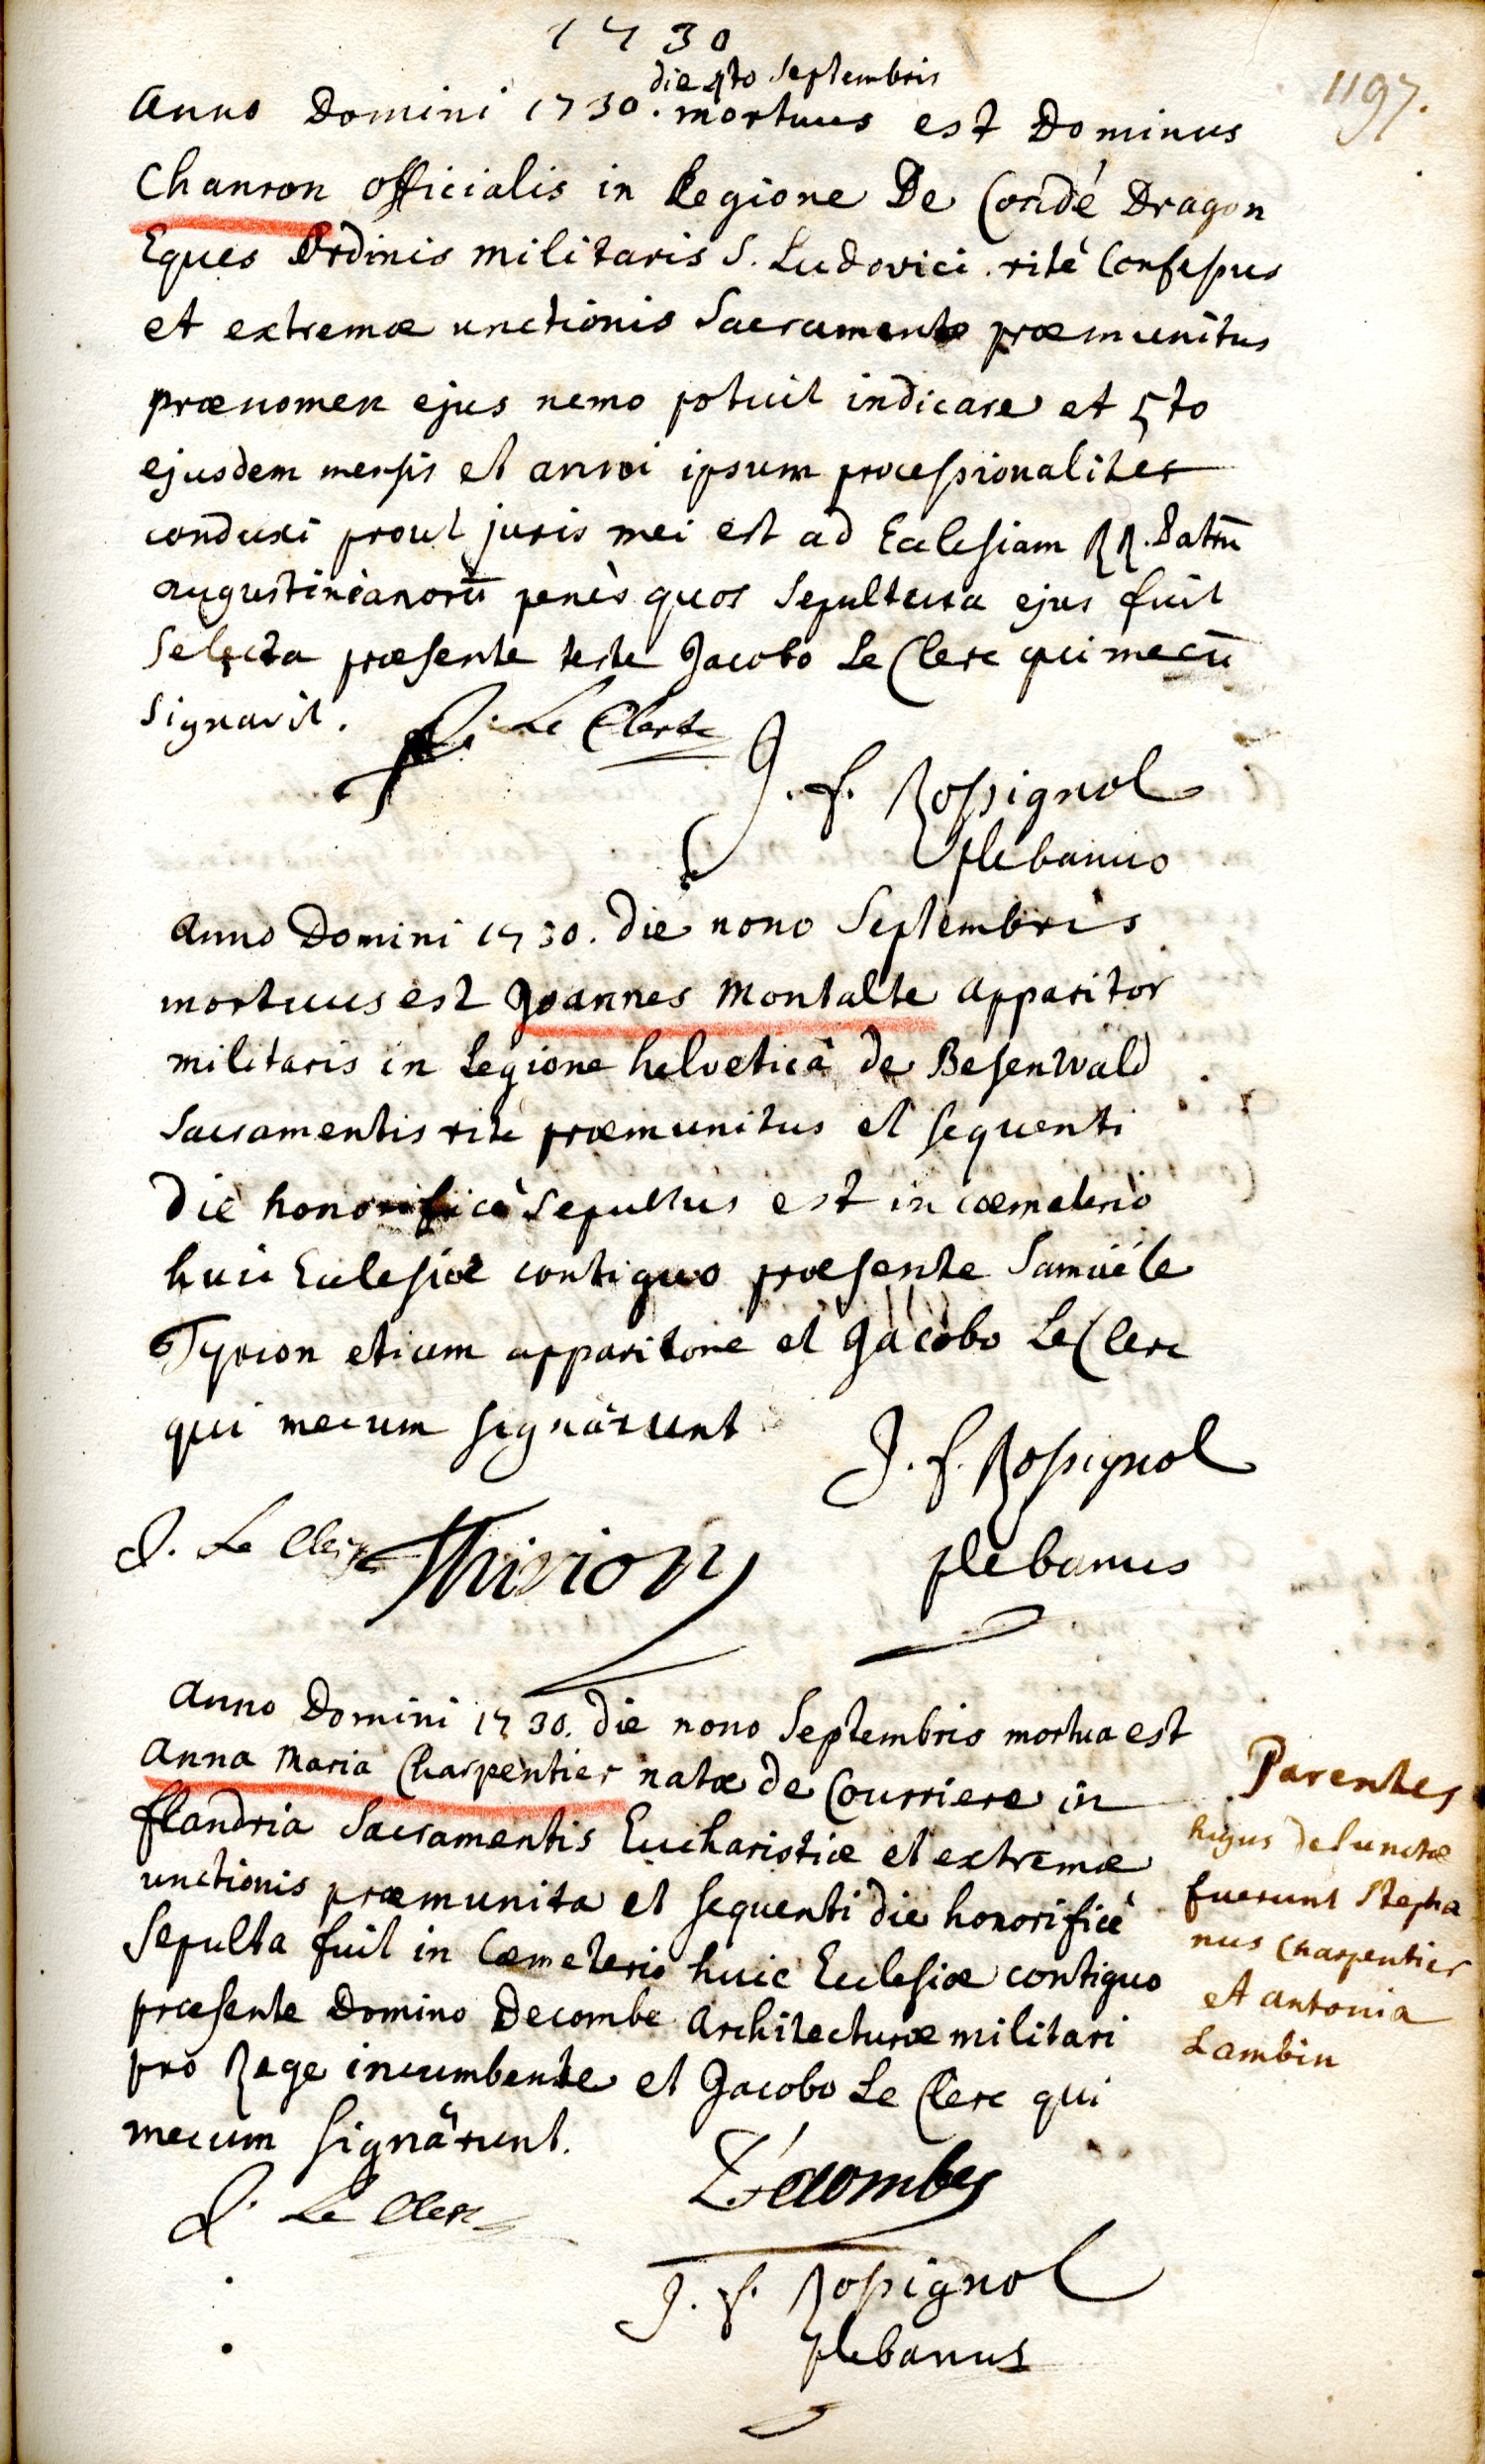 1730
1197.
die 4to Septembris
Anno Domini 1730. mortuus est Dominus
Chanron officialis in Legione De Condé Dragon
Eques Ordinis militaris S. Ludovici. ritè Confessus
et extremæ unctionis Sacramento præmunitus
prænomen ejus nemo potuit indicare et 5to
ejusdem mensis et anni ipsum processionaliter
conduxi prout juris mei est ad Ecclesiam RR. Patrū
augustinianorū penès quos Sepultura ejus fuit
Selecta præsente teste Jacobo Le Clerc qui mecū
Signavit.
J. Le Clerc
J. f. Rossignol
plebanus
Anno Domini 1730. die nono Septembris
mortuus est Joannes Montalte apparitor
militaris in Legione helveticâ de Besenwald
Sacramentis rite præmunitus et sequenti
die honorificè Sepultus est in cœmeterio
huic Ecclesiæ contiguo præsente Samuële
Tyrion etiam apparitore et Jacobo Le Clerc
qui mecum signârunt
J. f. Rossignol
plebanus
J. Le Clerc Thirion
Anno Domini 1730. die nono Septembris mortua est
Anna Maria Charpentier natæ de Courriere in
flandria Sacramentis Eucharistiæ et extremæ
unctionis præmunita et sequenti die honorificè
Sepulta fuit in Cœmeterio huic Ecclesiæ contiguo
præsente Domino Decombe Architecturæ militari
pro Rege incumbente et Jacobo Le Clerc qui
mecum signârunt.
Parentes
hujus defunctæ
fuerunt Stepha
nus Charpentier
et antonia
Lambin
J. Le Clerc
Décombes
J. f. Rossignol
plebanus